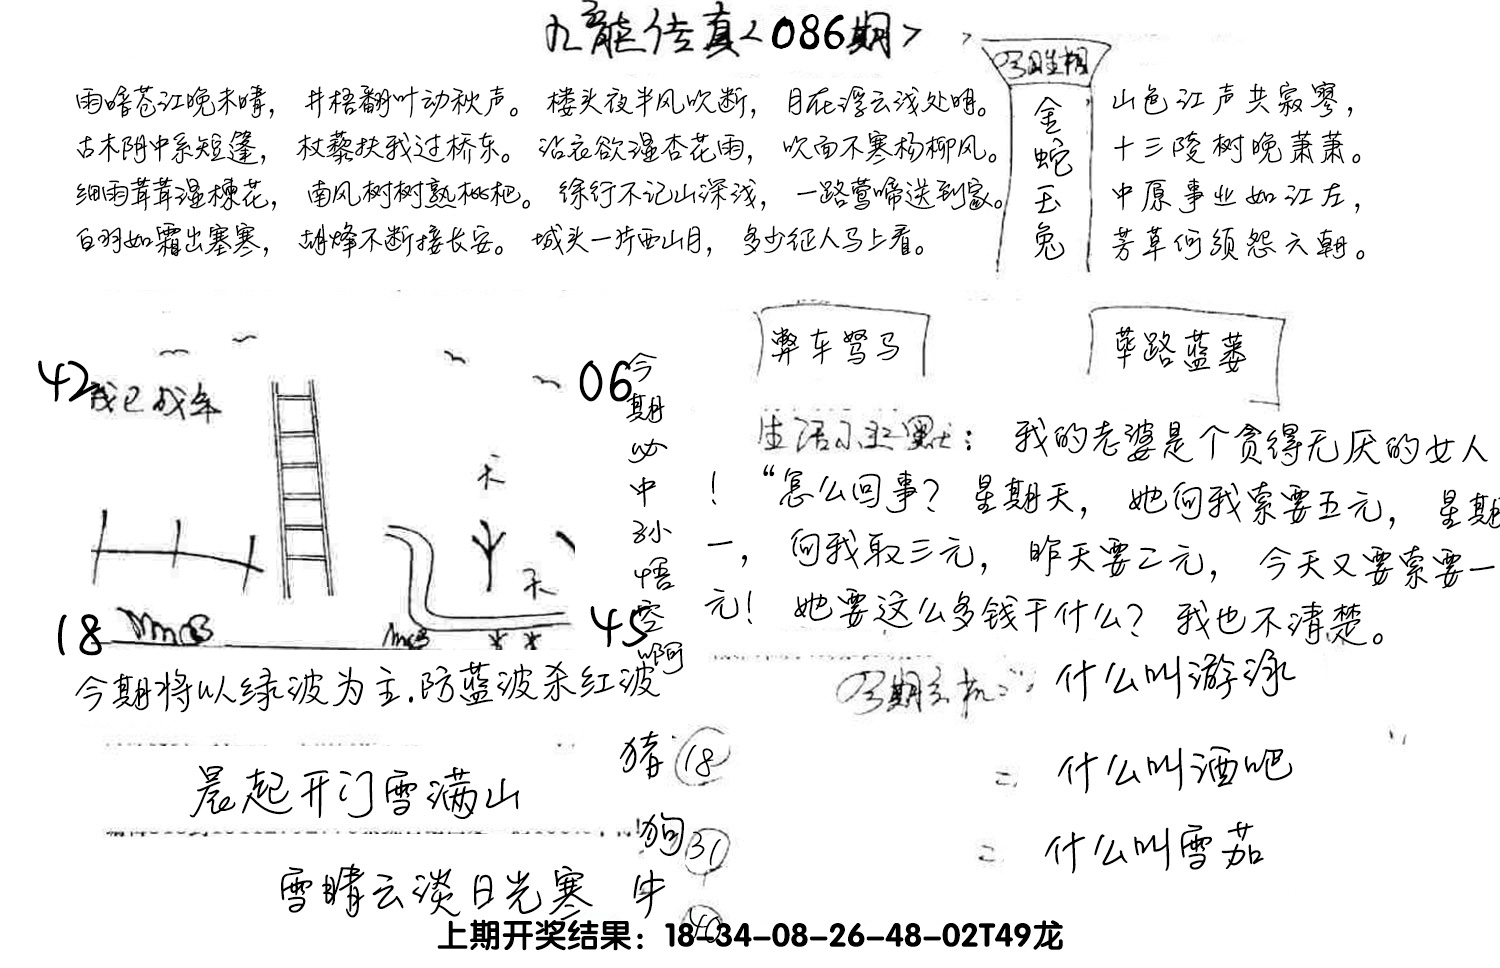 九龙传真<086期>
今期生相
金蛇玉兔
雨暗苍江晚未晴，井梧翻叶动秋声。楼头夜半风吹断，月在浮云浅处明。
古木阴中系短篷，杖藜扶我过桥东。沾衣欲湿杏花雨，吹面不寒杨柳风。
细雨茸茸湿楝花，南风树树熟枇杷。徐行不记山深浅，一路莺啼送到家。
白羽如霜出塞寒，胡烽不断接长安。城头一片西山月，多少征人马上看。
山色江声共寂寥，
十三陵树晚萧萧。
中原事业如江左，
芳草何须怨六朝。
42
06
18
45
今期必中孙悟空啊
弊车驽马
荜路蓝蒌
生活小幽默：我的老婆是个贪得无厌的女人
！“怎么回事？星期天，她向我索要五元，星期
一，向我取三元，昨天要二元，今天又要索要一
元！她要这么多钱干什么？我也不清楚。
今期将以绿波为主.防蓝波杀红波
今期玄机:
什么叫游泳
什么叫酒吧
什么叫雪茄
晨起开门雪满山
雪晴云淡日光寒
猪 18
狗 31
牛 40
上期开奖结果：18-34-08-26-48-02T49龙